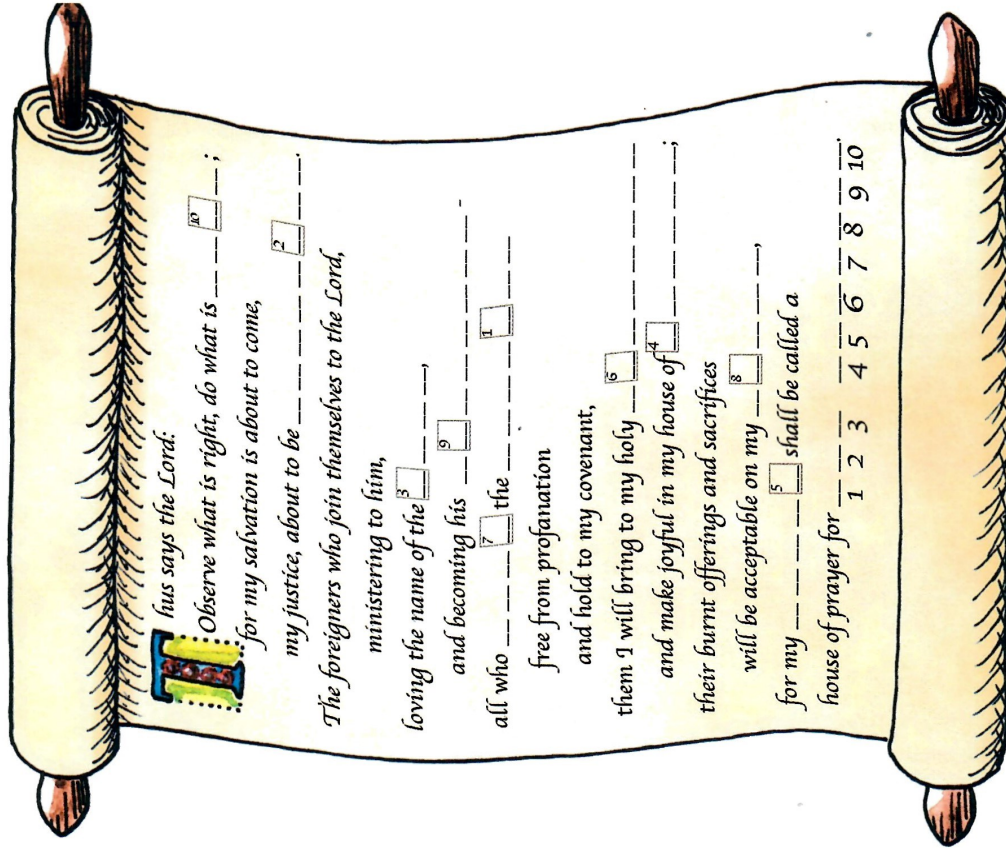 Thus says the Lord:
Observe what is right, do what is _ _ _ _ 10 _ _;
for my salvation is about to come,
my justice, about to be _ _ _ _ _ _ 2 _ _.
The foreigners who join themselves to the Lord,
ministering to him,
loving the name of the 3 _ _ _,
and becoming his _ 9 _ _ _ _ _ _ _ -
all who _ _ _ 7 the _ _ _ _ _ 1 _ _
free from profanation
and hold to my covenant,
them I will bring to my holy _ 6 _ _ _ _ _ _
and make joyful in my house of 4 _ _ _ _ _;
their burnt offerings and sacrifices
will be acceptable on my _ 8 _ _ _,
for my _ _ _ _ 5 shall be called a
house of prayer for _ _ _ _ _ _ _ _ _ _.
1 2 3 4 5 6 7 8 9 10